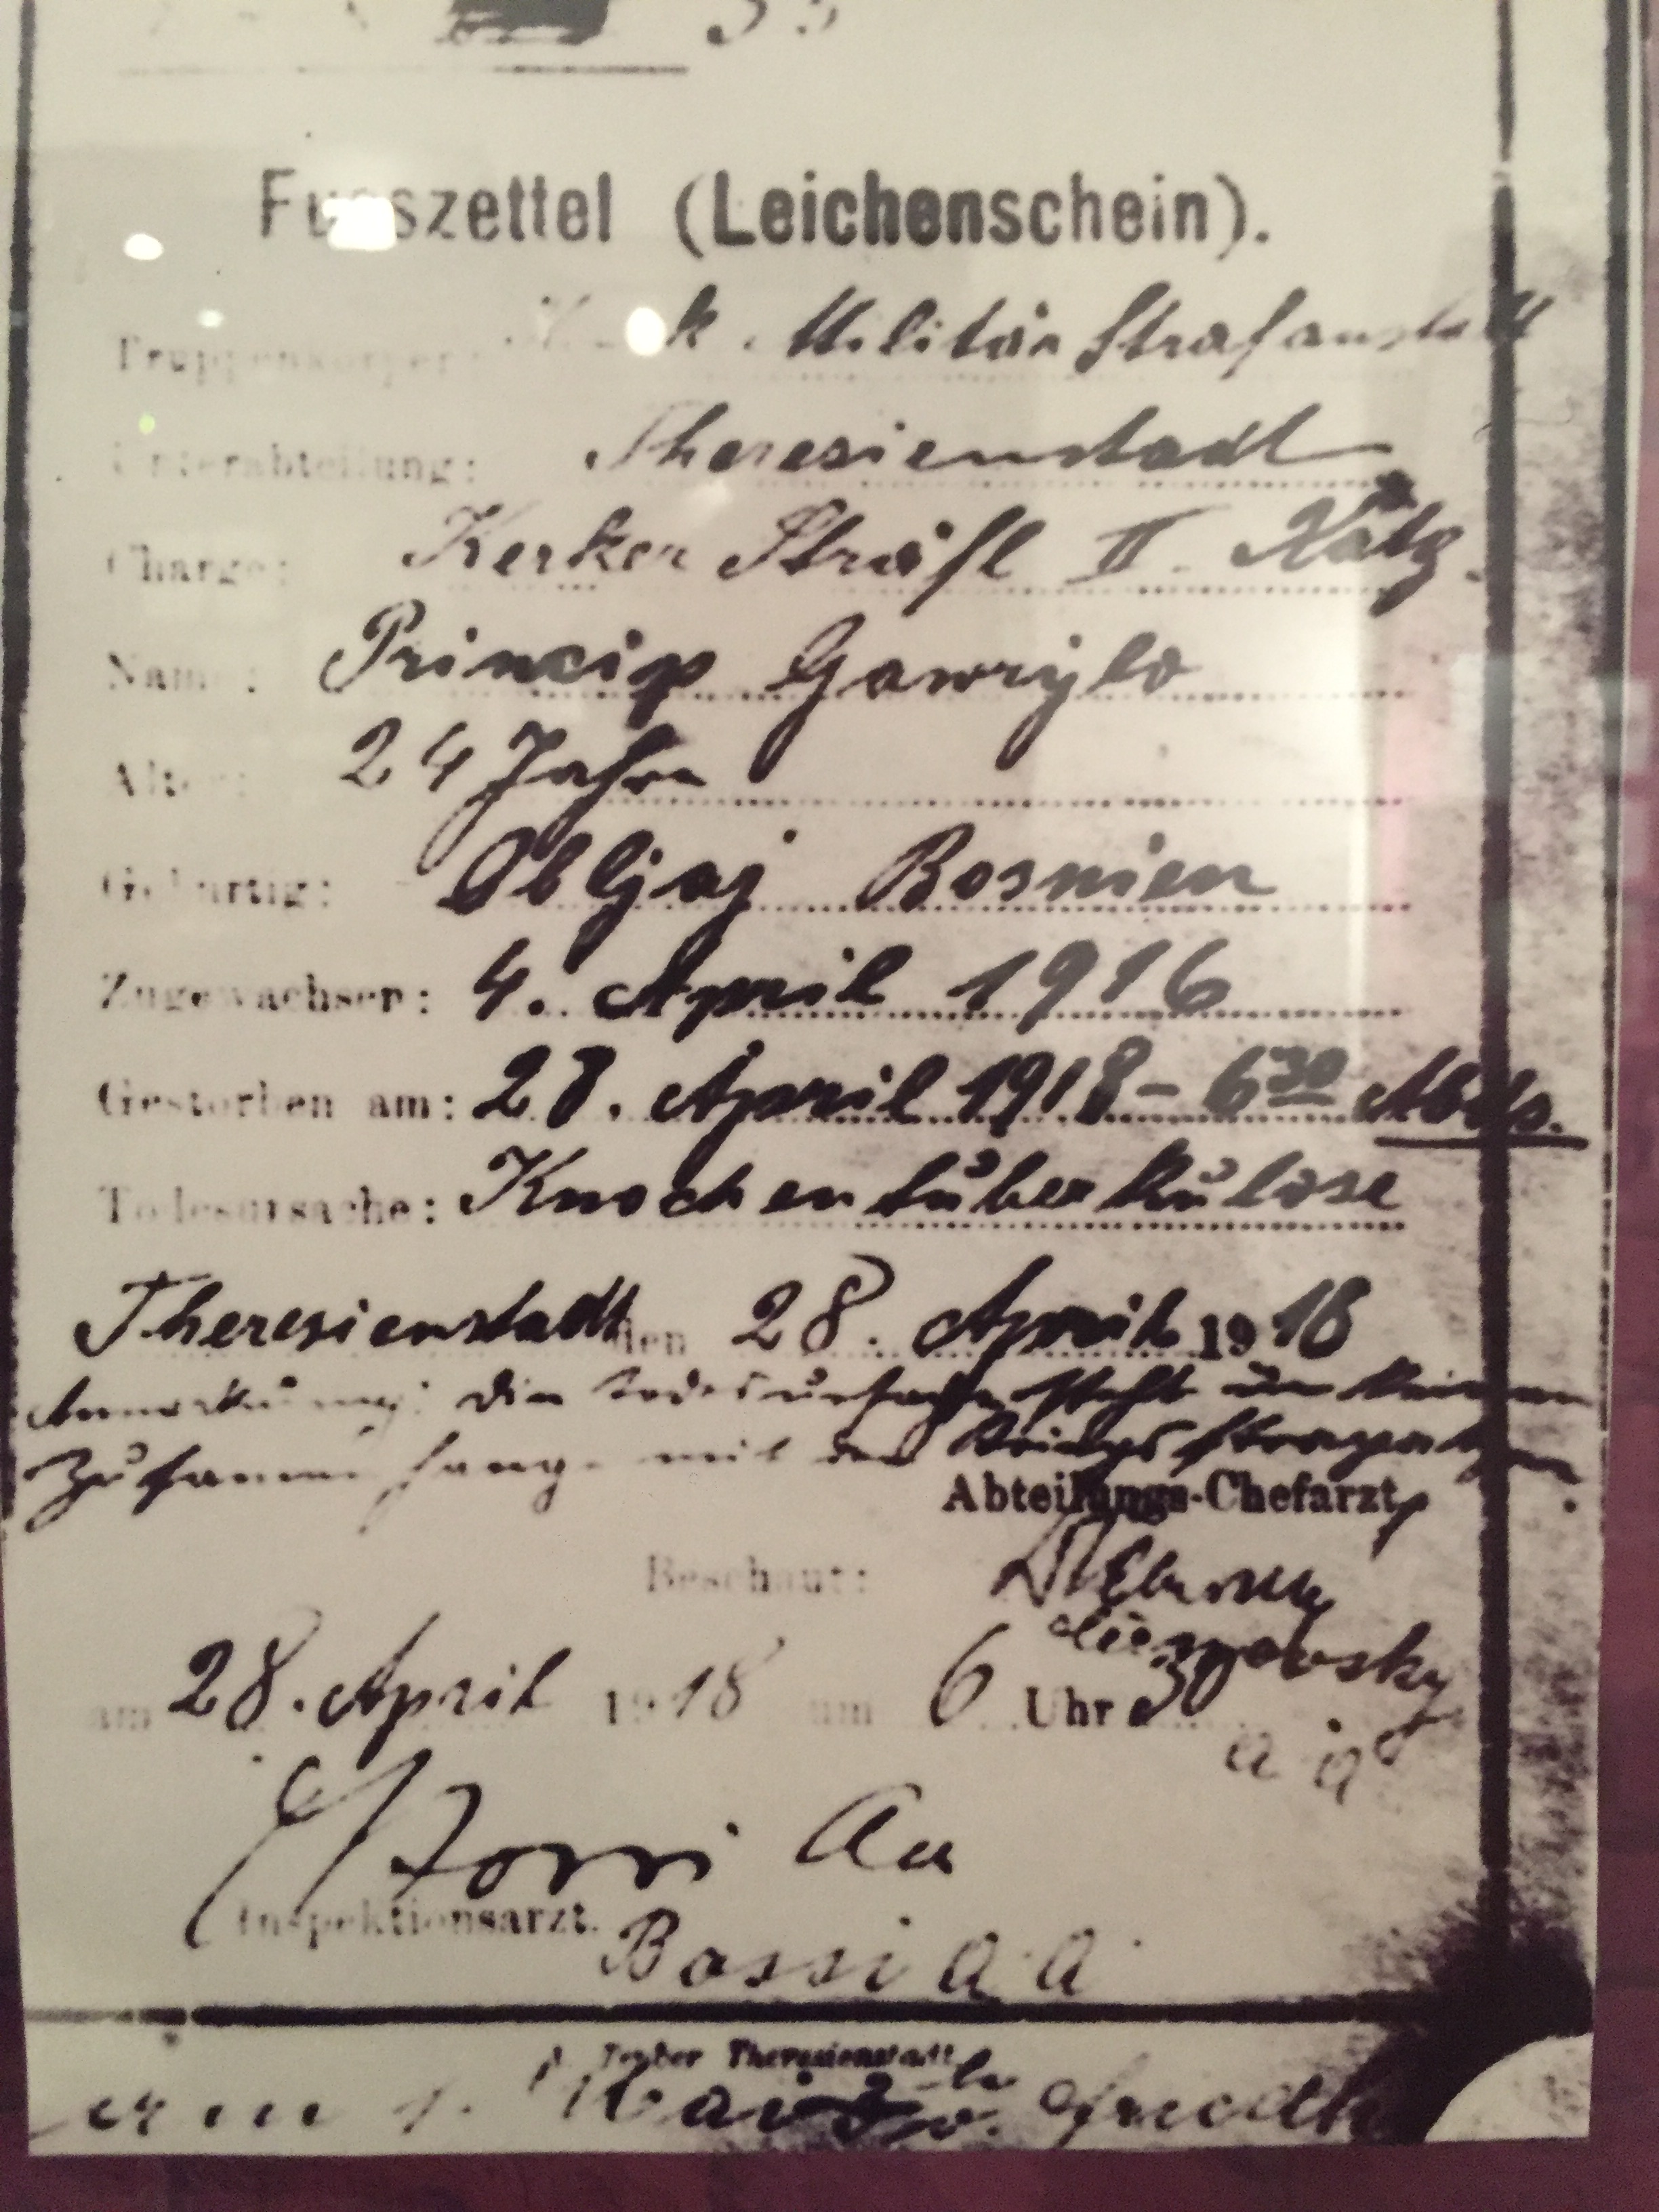 Fusszettel (Leichenschein).
Truppenkörper: K. k. Militär Strafanstalt
Unterabteilung: Theresienstadt
Charge: Kerker Sträfl II. Klātz.
Name: Princip Gawrylo
Alter: 24 Jahre
Gebürtig: Obljaj Bosnien
Zugewachsen: 4. April 1916
Gestorben am: 28. April 1918 – 6 30 Abds.
Todesursache: Knochentuberkulose
Theresienstadt den 28. April 1918
Anmerkung: Die Todesursache steht in keinem
Zusammenhange mit den Kriegsstrapatzen.
Abteilungs-Chefarzt
Beschaut:
am 28. April 1918 um 6 Uhr 30
Inspektionsarzt.
Bossi
Theresienstadt